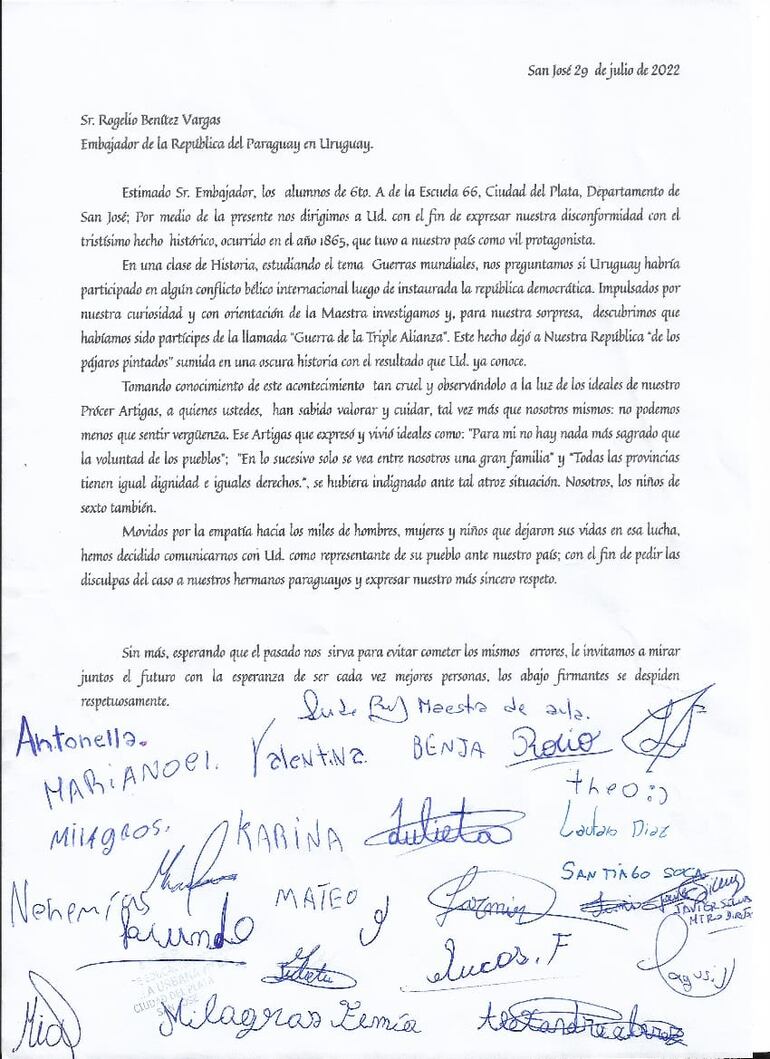 San José 29 de julio de 2022
Sr. Rogelio Benítez Vargas
Embajador de la República del Paraguay en Uruguay.
Estimado Sr. Embajador, los alumnos de 6to. A de la Escuela 66, Ciudad del Plata, Departamento de
San José; Por medio de la presente nos dirigimos a Ud. con el fin de expresar nuestra disconformidad con el
tristísimo hecho histórico, ocurrido en el año 1865, que tuvo a nuestro país como vil protagonista.
En una clase de Historia, estudiando el tema Guerras mundiales, nos preguntamos si Uruguay habría
participado en algún conflicto bélico internacional luego de instaurada la república democrática. Impulsados por
nuestra curiosidad y con orientación de la Maestra investigamos y, para nuestra sorpresa, descubrimos que
habíamos sido partícipes de la llamada "Guerra de la Triple Alianza". Este hecho dejó a Nuestra República "de los
pájaros pintados" sumida en una oscura historia con el resultado que Ud. ya conoce.
Tomando conocimiento de este acontecimiento tan cruel y observándolo a la luz de los ideales de nuestro
Prócer Artigas, a quienes ustedes, han sabido valorar y cuidar, tal vez más que nosotros mismos: no podemos
menos que sentir vergüenza. Ese Artigas que expresó y vivió ideales como: "Para mi no hay nada más sagrado que
la voluntad de los pueblos"; "En lo sucesivo solo se vea entre nosotros una gran familia" y "Todas las provincias
tienen igual dignidad e iguales derechos.", se hubiera indignado ante tal atroz situación. Nosotros, los niños de
sexto también.
Movidos por la empatía hacia los miles de hombres, mujeres y niños que dejaron sus vidas en esa lucha,
hemos decidido comunicarnos con Ud. como representante de su pueblo ante nuestro país; con el fin de pedir las
disculpas del caso a nuestros hermanos paraguayos y expresar nuestro más sincero respeto.
Sin más, esperando que el pasado nos sirva para evitar cometer los mismos errores, le invitamos a mirar
juntos el futuro con la esperanza de ser cada vez mejores personas, los abajo firmantes se despiden
respetuosamente.
Maestra de aula.
Antonella. Valentina. BENJA Rocio
MARIANOEL. theo :)
MILAGROS. KARINA Julieta Lautaro Diaz
SANTIAGO SOCA
Nehemías MATEO Jazmin JAVIER SILVA
MTRO DIRETOR
Facundo
Julieta Lucas. F Agus
A URBANA
CIUDAD DEL PLATA
SAN JOSE
Mia Milagros Zemía